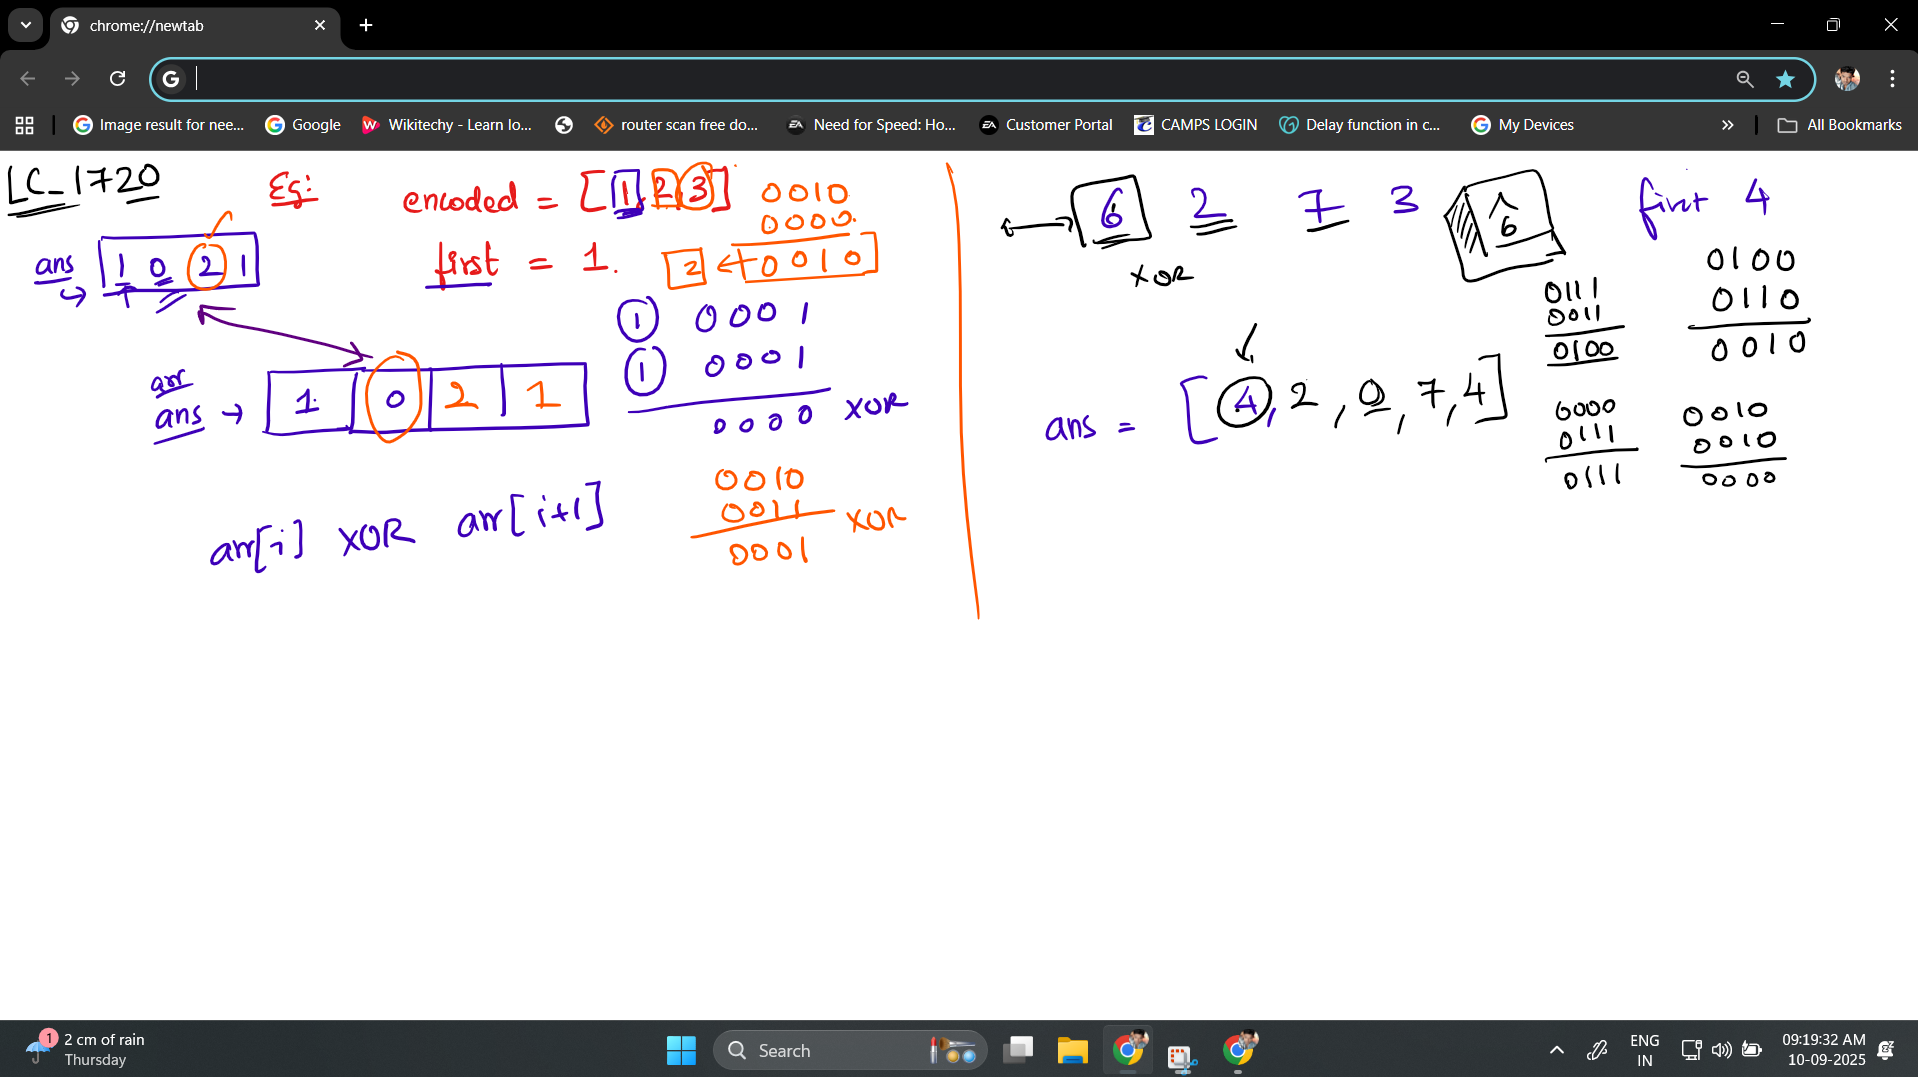 chrome://newtab
Image result for nee...
Google
Wikitechy - Learn lo...
router scan free do...
Need for Speed: Ho...
Customer Portal
CAMPS LOGIN
Delay function in c...
My Devices
All Bookmarks
LC_1720
Eg:
encoded = [1,2,3]
0010
0000
2 ← 0010
first = 1.
ans
1 0 2 1
① 0001
① 0001
0000 XOR
arr
ans → 1 0 2 1
0010
0011 XOR
0001
arr[i] XOR arr[i+1]
6 2 7 3 ^ 6
XOR
first 4
0100
0110
0010
0111
0011
0100
ans = [4, 2, 0, 7, 4]
0000
0111
0111
0010
0010
0000
1
2 cm of rain
Thursday
Search
ENG
IN
09:19:32 AM
10-09-2025